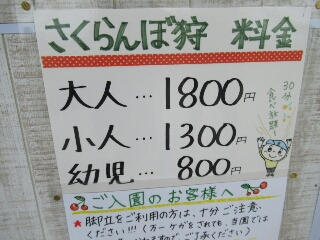 さくらんぼ狩 料金
大人…1800円
小人…1300円
幼児…800円
30分
食べ放題!
ご入園のお客様へ
★脚立をご利用の方は、十分ご注意
ください!!!(万一ケガをされても、当園では